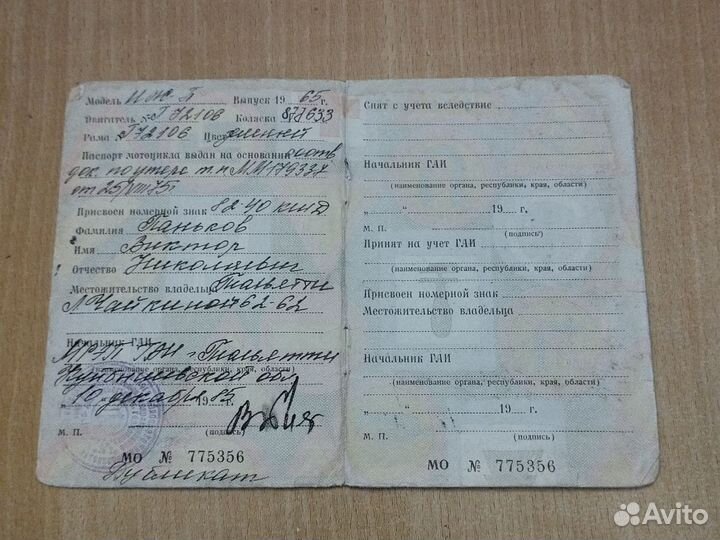 Модель ИЖ П Выпуск 1965 г.
Двигатель № Г 72106 Коляска 877633
Рама Г72106 Цвет зеленый
Паспорт мотоцикла выдан на основании соотв
док. по утере т.п ММ 179337
от 25/VIII 75 г
Присвоен номерной знак 82-40 кшд
Фамилия Паньков
Имя Виктор
Отчество Николаевич
Местожительство владельца Тольятти
Л. Чайкиной 62-62
Начальник ГАИ
МРЭП ГАИ г. Тольятти
(наименование органа, республики, края, области)
Куйбышевской обл
10 декабря 19 75 г.
М. П. (подпись)
МО № 775356
Дубликат
Снят с учета вследствие
Начальник ГАИ
(наименование органа, республики, края, области)
„ “ 19 г.
(подпись)
Принят на учет ГАИ
(наименование органа, республики, края, области)
Присвоен номерной знак
Местожительство владельца
Начальник ГАИ
(наименование органа, республики, края, области)
„ “ 19 г.
М. П. (подпись)
МО № 775356
Avito